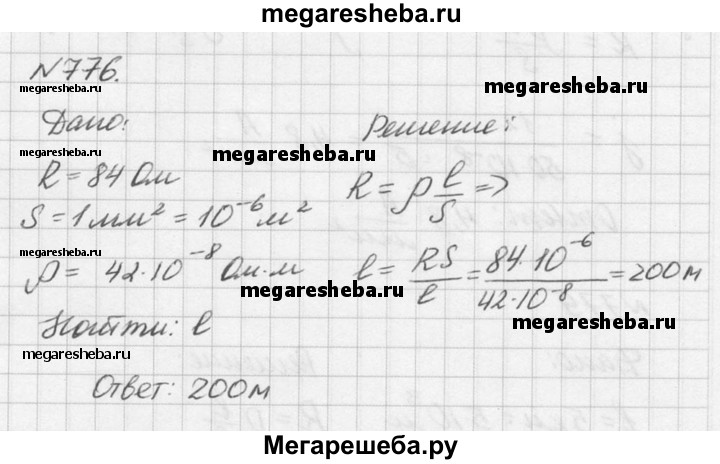 megaresheba.ru
N776.
megaresheba.ru
megaresheba.ru
Дано: Решение:
megaresheba.ru
R = 84 Ом R = ρ l/S =>
S = 1 мм² = 10⁻⁶ м²
megaresheba.ru
ρ = 42·10⁻⁸ Ом·м l = RS/l = 84·10⁻⁶/42·10⁻⁸ = 200 м
megaresheba.ru
megaresheba.ru
Найти: l
megaresheba.ru
Ответ: 200 м
Мегарешеба.ру